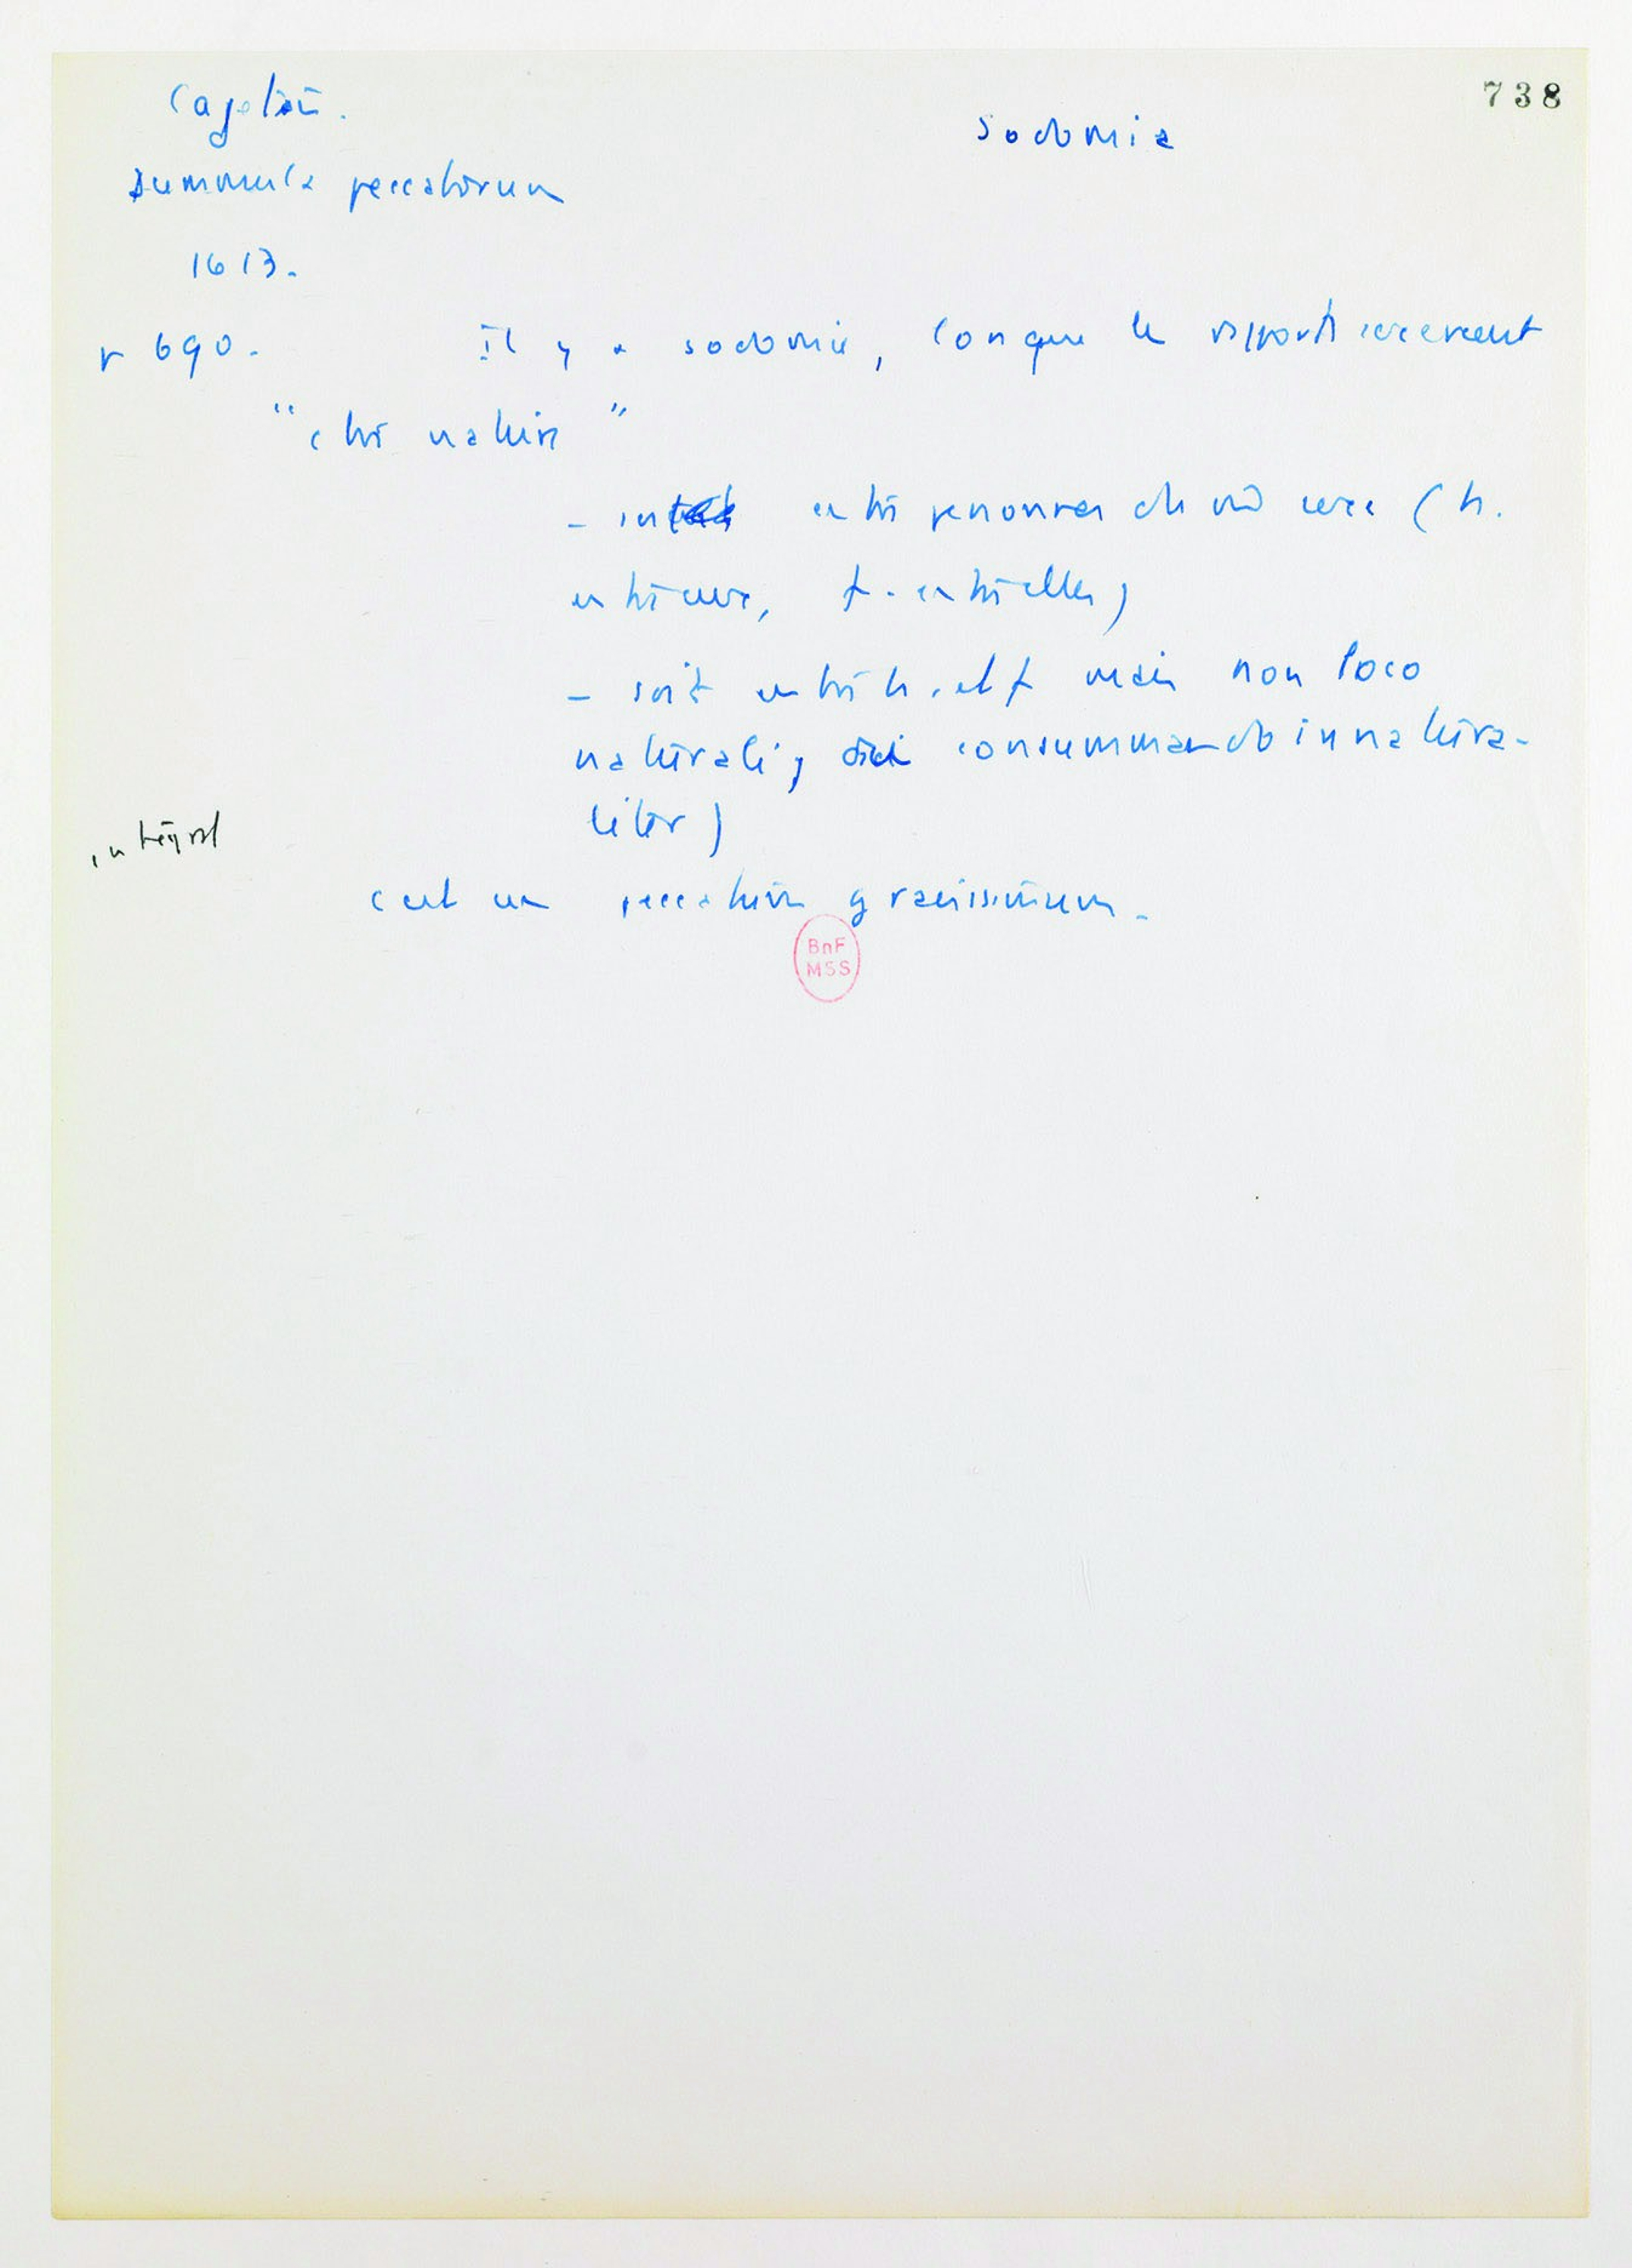 738
Cajetan.
Sodomia
Summula peccatorum
1613.
p 690.
Il y a sodomie, lorsque le rapport sexuel est
" contra naturam "
- entre personnes du même sexe (h.
entre eux, f. entre elles)
- soit entre h. et f mais non loco
naturali, consummando innatura-
liter)
integral
c'est un peccatum gravissimum.
BnF
MSS